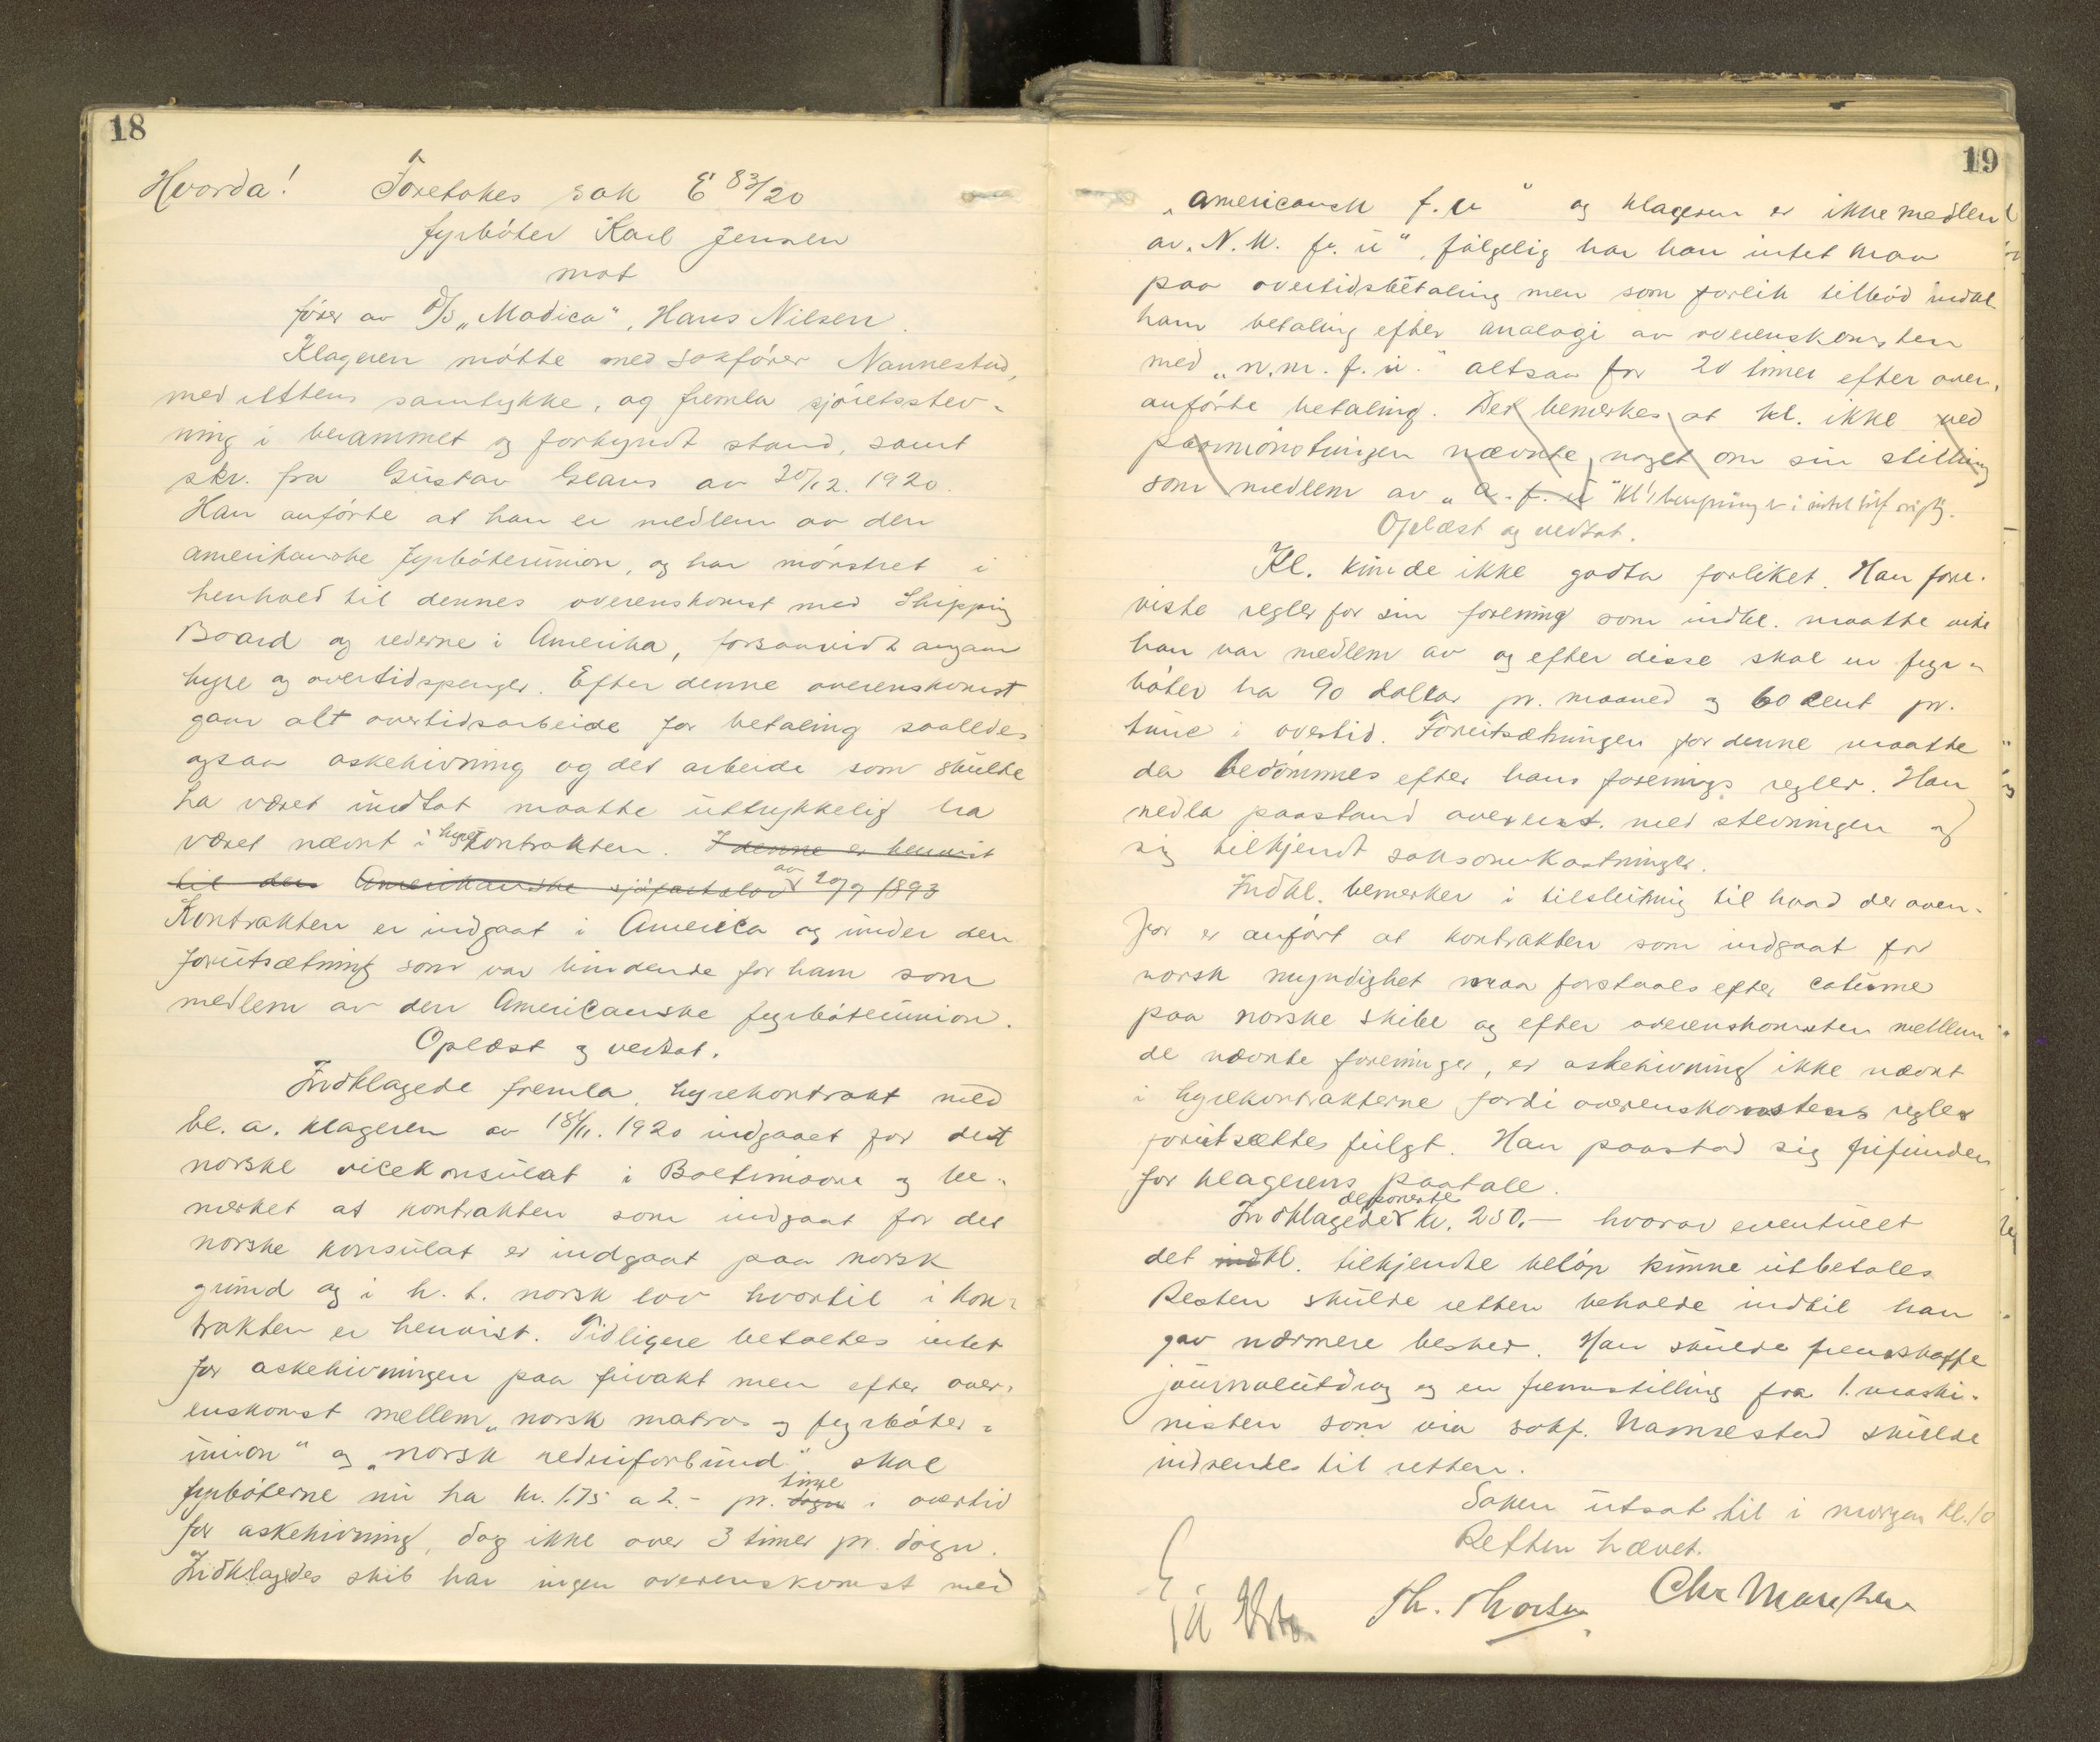 18
Hvorda! Foretokes sak E 83/20
fyrböter Karl Jensen
mot
förer av D/S „Modica“, Hans Nilsen.
Klageren mötte med sakförer Nannestad,
med rettens samtykke, og fremla sjöretsstev-
ning i berammet og forkyndt stand, samt
skr. fra Gustav Glans av 20/12. 1920.
Han anförte at han er medlem av den
amerikanske fyrböterunion, og har mönstret i
henhold til dennes overenskomst med Shipping
Board og rederne i Amerika, forsaavidt angaar
hyre og overtidspenger. Efter denne overenskomst
gaar alt overtidsarbeide for betaling saaledes
ogsaa askehivning og det arbeide som skulde
ha været undtat maatte uttrykkelig ha
været nævnt i hyrekontrakten. I denne er henvist
til den Amerikanske sjöfartslov av 20/9 1893
Kontrakten er indgaat i America og under den
forutsætning som var bindende for ham som
medlem av den Americanske fyrböterunion.
Oplæst og vedtat.
Indklagede fremla hyrekontrakt med
bl. a. klageren av 18/11. 1920 indgaaet for det
norske vicekonsulat i Baltimoore og be-
merket at kontrakten som indgaat for det
norske konsulat er indgaat paa norsk
grund og i h. t. norsk lov hvortil i kon-
trakten er henvist. Tidligere betaltes intet
for askehivningen paa frivakt men efter over-
enskomst mellem „norsk matros og fyrböter-
union“ og „norsk rederiforbund“ skal
fyrböterne nu ha kr. 1.75 a 2.- pr. dögn time i overtid
for askehivning, dog ikke over 3 timer pr. dögn.
Indklagedes skib har ingen overenskomst med
19
„americansk f. u“ og klageren er ikke medlem
av „N. M. f. u“, fölgelig har han intet krav
paa overtidsbetaling men som forlik tilböd indkl.
ham betaling efter analogi av overenskomsten
med „n. m. f. u.“ altsaa for 20 timer efter oven-
anförte betaling. Det bemerkes at kl. ikke ved
paamönstringen nævnte noget om sin stilling
som medlem av „a. f. u“ kl's i intet
Oplæst og vedtat.
Kl. kunde ikke godta forliket. Han fore-
viste regler for sin forening som indkl. maatte vite
han var medlem av og efter disse skal en fyr-
böter ha 90 dollar pr. maaned og 60 cent pr.
time i overtid. Forutsætningen for denne maatte
da bedömmes efter hans forenings regler. Han
nedla paastand overenst. med stevningen og
sig tilkjendt saksomkostninger.
Indkl. bemerker i tilslutning til hvad der oven-
for er anfört at kontrakten som indgaat for
norsk myndighet maa forstaaes efter cotume
paa norske skibe og efter overenskomsten mellem
de nævnte foreninger, er askehivning ikke nævnt
i hyrekontrakterne fordi overenskomstens regler
forutsættes fulgt. Han paastod sig frifunden
for klagerens paatale.
Indklagede deponerte kr. 250.- hvorav eventuelt
det indkl. tilkjendte belöp kunne utbetales.
Resten skulde retten beholde indtil han
gav nærmere besked. Han skulde fremskaffe
journalutdrag og en fremstilling fra 1. maski-
nisten som via sakf. Nannestad skulde
indsendes til retten.
Saken utsat til i morgen kl. 10
Retten hævet.
Th. Thorsen Chr Marthin